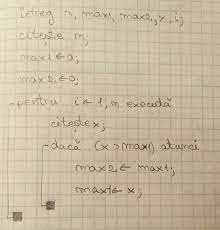 întreg n, max1, max2, x, i;
citește n;
max1 ← 0;
max2 ← 0;
pentru i ← 1, n execută
citește x;
dacă (x > max1) atunci
max2 ← max1;
max1 ← x;